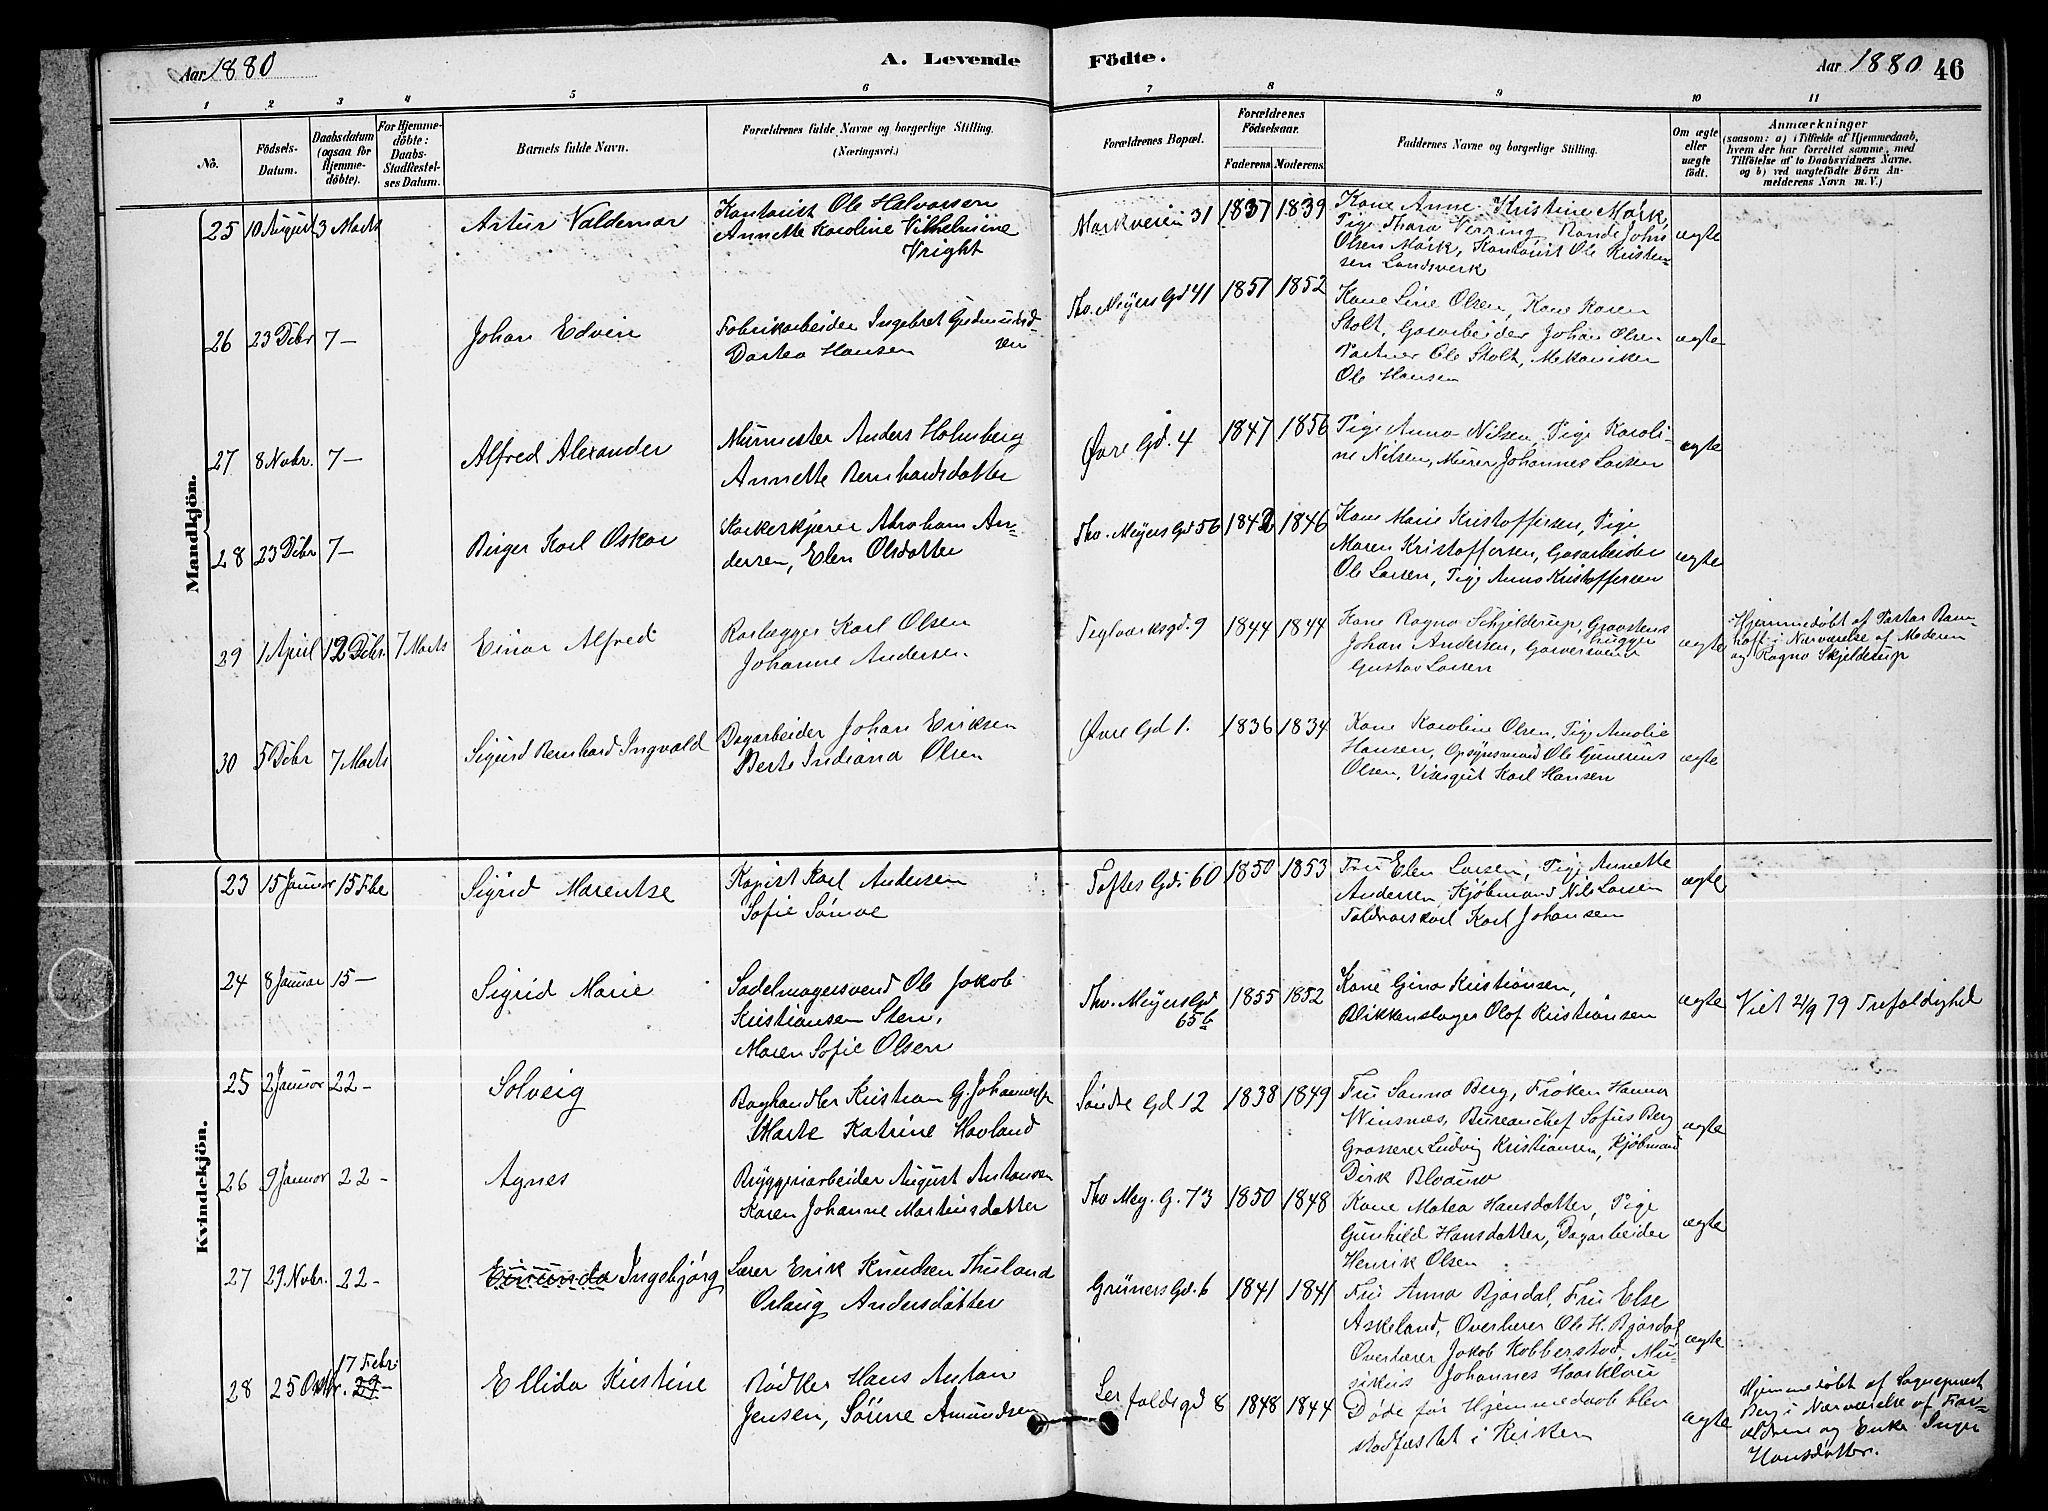 Aar 1880
A. Levende
Födte.
Aar 1880 46
1 2 3 4 5 6 7 8 9 10 11
No.
Födsels-
Datum.
Daabsdatum
(ogsaa for
Hjemme-
döbte).
For Hjemme-
döbte:
Daabs-
Stadfæstel-
ses Datum.
Barnets fulde Navn.
Forældrenes fulde Navne og borgerlige Stilling.
(Næringsvei.)
Forældrenes Bopæl.
Forældrenes
Födselsaar.
Faderens. Moderens.
Faddernes Navne og borgerlige Stilling.
Om ægte
eller
uægte
födt.
Anmærkninger
(saasom: a) i Tilfælde af Hjemmedaab,
hvem der har forrettet samme, med
Tilföielse af to Daabsvidners Navne.
og b) ved uægtefödte Börn An-
melderens Navn m. V.)
Mandkjön.
25 10 August 3 Marts
Artur Valdemar
Kontorist Ole Halvorsen
Annette Karoline Vilhelmine
Vright
Markveien 31 1837 1839
Kone Anne Kristine Mørk,
Pige Thora Virring, Bonde John
Olsen Mørk, Kontorist Ole Kristen-
sen Landsverk
ægte
26 23 Debr 7 —
Johan Edvin
Fabrikarbeider Ingebret Gudmunds-
sen
Dortea Hansen
Tho. Meyers Gd 41 1851 1852
Kone Line Olsen, Kone Karen
Stolt, Gasarbeider Johan Olsen
Portner Ole Stolt, Mekaniker
Ole Hansen
ægte
27 8 Nobr. 7 —
Alfred Alexander
Murmester Anders Holmberg
Annette Bernhardsdatter
Øvre Gd. 4 1847 1856
Pige Anna Nilsen, Pige Karoli-
ne Nilsen, Murer Johannes Larsen
ægte
28 23 Debr 7 —
Birger Karl Oskar
Korkskjærer Abraham An-
dersen, Elen Olsdatter
Tho. Meyers Gd 56 1842 1846
Kone Marie Kristoffersen, Pige
Maren Kristoffersen, Gasarbeider
Ole Larsen, Pige Anna Kristoffersen
ægte
29 1 April 12 Debr. 7 Marts
Einar Alfred
Rørlægger Karl Olsen
Johanne Andersen
Teglværksgd. 9 1844 1844
Kone Ragna Schjelderup, Gravstens
hugger
Johan Andersen, Garversvend
Gustav Larsen
ægte
Hjemmedøbt af Pastor Bom-
hoff i Nærværelse af Moderen
og Ragna Skjelderup
30 5 Debr 7 Marts
Sigurd Bernhard Ingvald
Dagarbeider Johan Eriksen
Berte Indiana Olsen
Øvre Gd 1. 1836 1834
Kone Karoline Olsen, Pige Amalie
Hansen, Opsynsmand Ole Gunerius
Olsen, Visergut Karl Hansen
ægte
Kvindekjön.
23 15 Januar 15 Febr
Sigrid Marentse
Kopist Karl Andersen
Sofie Sømoe
Toftes Gd. 60 1850 1853
Fru Elen Larsen, Pige Annette
Andersen, Kjøbmand Nils Larsen
Toldvarskarl Karl Johansen
ægte
24 8 Januar 15 —
Sigrid Marie
Sadelmagersvend Ole Jakob
Kristiansen Sten,
Maren Sofie Olsen
Tho. Meyers Gd
65 b 1855 1852
Kone Gina Kristiansen,
Blikkenslager Olof Kristiansen
ægte
Viet 2/9 79 Trefoldighed
25 2 Januar 22 —
Solveig
Boghandler Kristian G. Johannesen
Marte Katrine Hovland
Søndre Gd 12 1838 1849
Fru Sanna Berg, Frøken Hanna
Winsnes, Bureauchef Sofus Berg
Grosserer Ludvig Kristiansen, Kjøbmand
Dirk Blaauw
ægte
26 9 Januar 22 —
Agnes
Bryggeriarbeider August Antonsen
Karen Johanne Martinsdatter
Tho Mey. G. 73 1850 1848
Kone Matea Hansdatter, Pige
Gunhild Hansdatter, Dagarbeider
Henrik Olsen
ægte
27 29 Nobr. 22 —
Ingebjørg
Lærer Erik Knudsen Thuland
Orlaug Andersdatter
Grüners Gd. 6 1841 1841
Fru Anna Bjørdal, Fru Else
Askeland, Overlærer Ole H. Bjørdal
Overlærer Jakob Hobberstad, Mu-
sikus Johannes Haarklou
ægte
28 25 Oktbr. 29 —
17 Febr.
Ellida Kristine
Bødker Hans Anton
Jensen, Sørine Amundsen
Lerfaldsgd 8 1848 1844
Døde før Hjemmedaab blev
stadfæstet i Kirken
ægte
Hjemmedøbt af Sogneprest
Berg i Nærværelse af For-
ældrene og Enke Inger
Hansdatter.